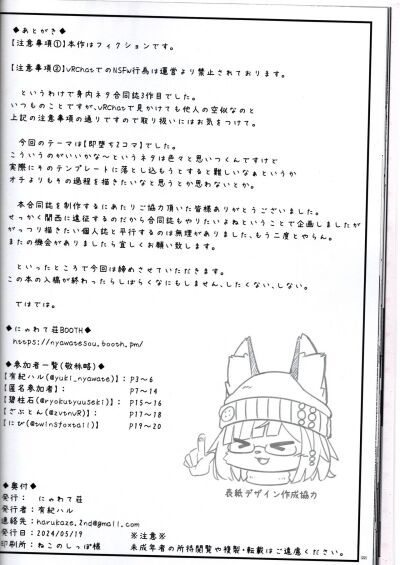 ◆あとがき◆
【注意事項①】本作はフィクションです。
【注意事項②】VRChatでのNSFW行為は運営より禁止されております。
というわけで身内ネタ合同誌3作目でした。
いつものことですが、VRChatで見かけても他人の空似なのと
上記の注意事項の通りですので取り扱いにはお気をつけて。
今回のテーマは【即堕ち2コマ】でした。
こういうのがいいかな～というネタは色々と思いつくんですけど
実際にそのテンプレートに落とし込もうとすると難しいなぁというか
オチよりもその過程を描きたいなと思うとか思わないとか。
本合同誌を制作するにあたりご協力頂いた皆様ありがとうございました。
せっかく関西に遠征するのだから合同誌もやりたいよねということで企画しましたが
がっつり描きたい個人誌と平行するのは無理がありました、もう二度とやらん。
またの機会がありましたら宜しくお願い致します。
といったところで今回は締めさせていただきます。
この本の入稿が終わったらしばらくなにもしません、したくない、しない。
ではでは。
◆にゃわて荘BOOTH◆
https://nyawatesou.booth.pm/
◆参加者一覧(敬称略)◆
【有紀ハル(@yuki_nyawate)】: P3～6
【匿名参加者】: P7～14
【碧柱石(@ryokutyuuseki)】: P15～16
【ざぶとん(@zvtnvR)】: P17～18
【にび(@twinsfoxtail)】 P19～20
表紙デザイン作成協力
◆奥付◆
発行: にゃわて荘
発行者:有紀ハル
連絡先:harukaze.2nd@gmail.com
発行日:2024/05/19 ※注意※
印刷所:ねこのしっぽ様 未成年者の所持閲覧や複製・転載はご遠慮ください。